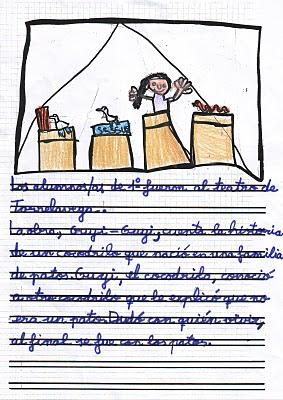 Los alumnos/as de 1º fueron al teatro de
Torrelavega..
La obra, Guyi-Guyi, cuenta la historia
de un cocodrilo que nació en una familia
de patos. Guyi, el cocodrilo, conoció
a otro cocodrilo que le explicó que no
era un pato. Dudó con quién vivir,
al final se fue con los patos.